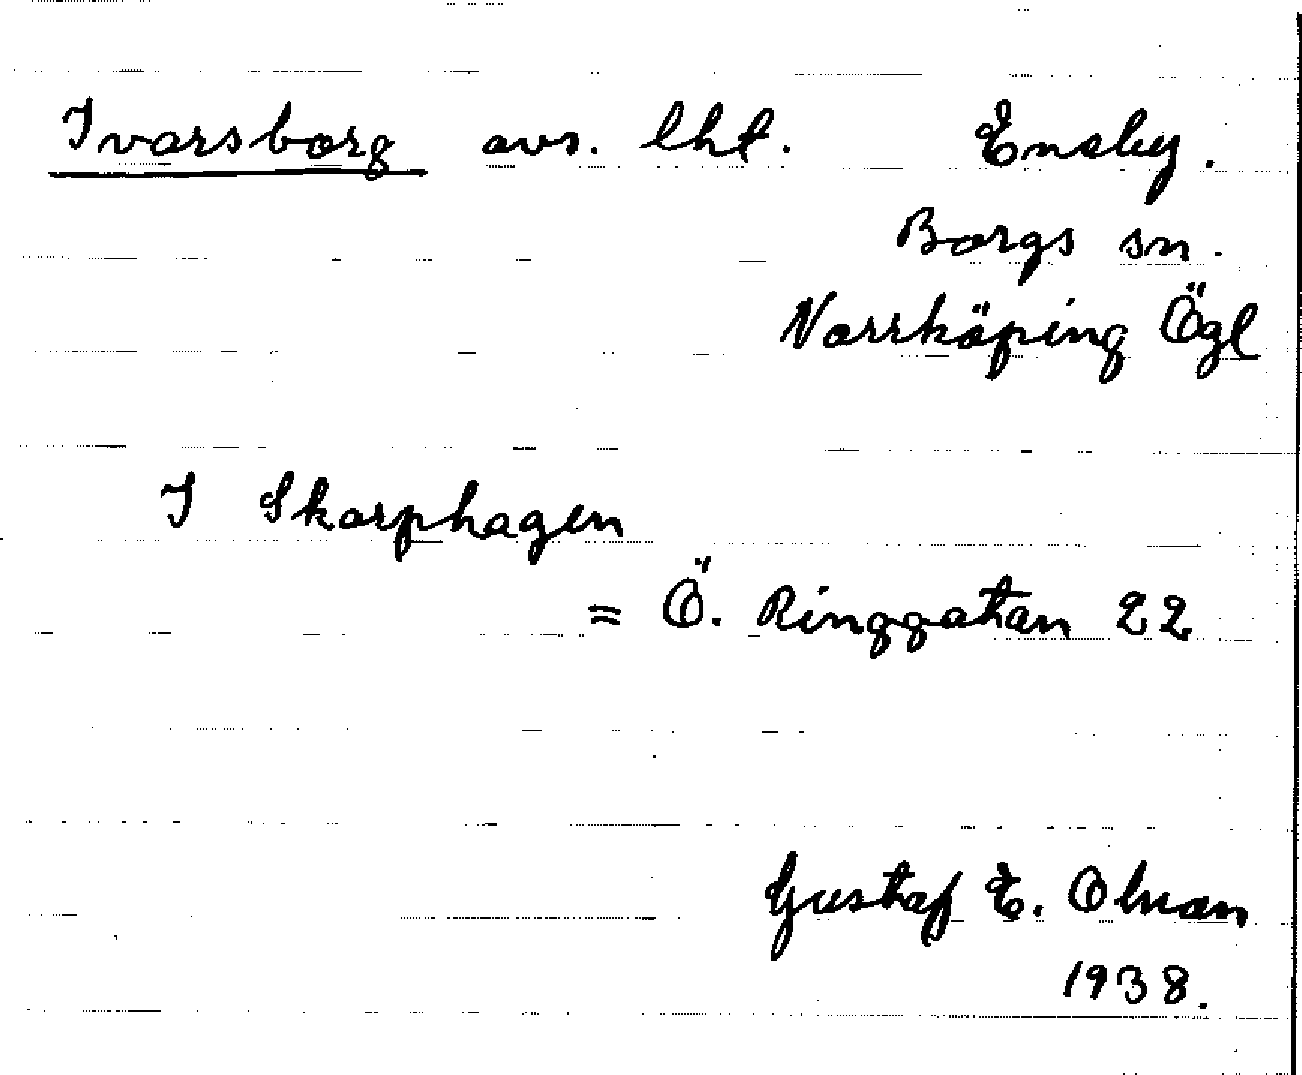 Ivarsborg avs. lht. Ensby.
Borgs sn.
Norrköping Ögl
I Skarphagen
= Ö. Ringgatan 22
Gustaf E. Olson
1938.